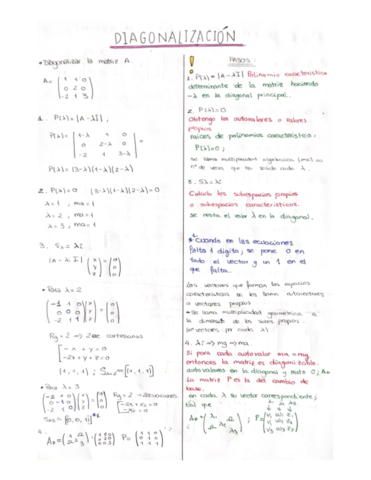 DIAGONALIZACIÓN
• Diagonalizar la matriz A
A = (1 1 0
0 2 0
-2 1 3)
1. P(λ) = |A - λI|
P(λ) = |1-λ 1 0
0 2-λ 0
-2 1 3-λ| =
P(λ) = (3-λ)(1-λ)(2-λ)
2. P(λ)=0 (3-λ)(1-λ)(2-λ)=0
λ = 1 , ma = 1
λ = 2 , ma = 1
λ = 3 , ma = 1
3. Sλ = λI
(A - λI) (x y z) = (0 0 0)
• Para λ = 2
(-1 1 0
0 0 0
-2 1 1) (x y z) = (0 0 0)
Rg = 2 → 2 ec cartesianas
-x + y = 0
-2x + y + z = 0
(1, 1, 1) ;
• Para λ = 3
(-2 1 0
0 -1 0
-2 1 0) (x y z) = (0 0 0)
Rg = 2 → 2 ecuaciones
PASOS:
1. P(λ) = |A - λI| Polinomio característico
determinante de la matriz haciendo
-λ en la diagonal principal.
2. P(λ)=0
Obtengo los autovalores o valores
propios
raíces de polinomios característico:
P(λ)=0 ;
se llama multiplicidad algebraica (ma) al
nº de veces que ha salido cada λ.
3. Sλ = λI
Calculo los subespacios propios
o subespacios característicos.
se resta el valor λ en la diagonal.
* Cuando en las ecuaciones
falta 1 dígito, se pone 0 en
todo el vector y un 1 en el
que falta.
Los vectores que forman los espacios
característicos se les llama autovectores
o vectores propios
• Se llama multiplicidad geométrica a
la dimensión de los subes propios.
(nº vectores por cada λ)
4. λi ⇒ mg = ma
Si para cada autovalor ma = mg
entonces la matriz es diagonalizable.
autovalores en la diagonal y resto 0; AD
La matriz P es la del cambio de
base.
en cada λ su vector correspondiente;
tal que